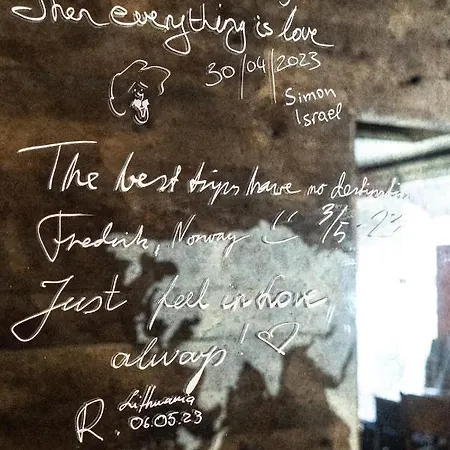 Then everything is love
30/04/2023
Simon
Israel
The best trips have no destination
Fredrik, Norway 3/5-23
Just feel in love,
always!
R. Lithuania
06.05.23